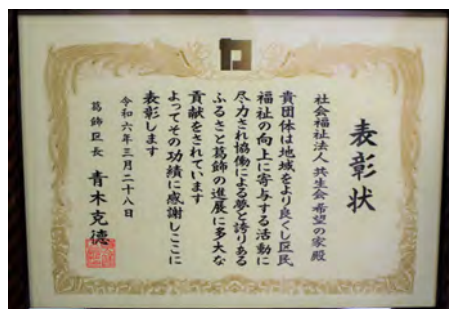 表彰状
社会福祉法人 共生会 希望の家殿
貴団体は地域をより良くし区民
福祉の向上に寄与する活動に
尽力され協働による夢と誇りある
ふるさと葛飾の進展に多大な
貢献をされています
よってその功績に感謝しここに
表彰します
令和六年三月二十八日
葛飾区長 青木克德